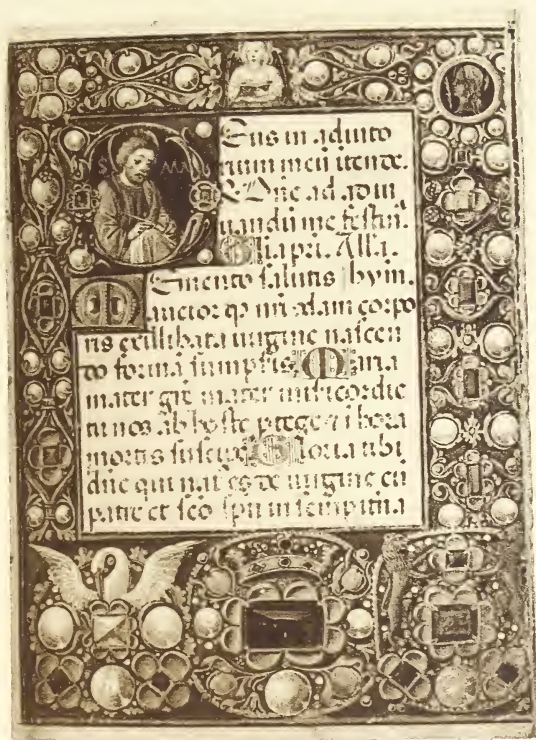 S MA
Eus in adiuto
rium meū intende.
R Dñe ad adiu
uandū me festin.
Glia pri. Alla.
Emento salutis hym.
auctor qp nri qdam corpo
ris ex illibata uirgine nascen
do formā sumpsis. Maria
mater grē mater misericordie
tu nos ab hoste ptege & i hora
mortis suscipe. Gloria tibi
dñe qui nat es de uirgine cū
patre et sco spu in sempitna